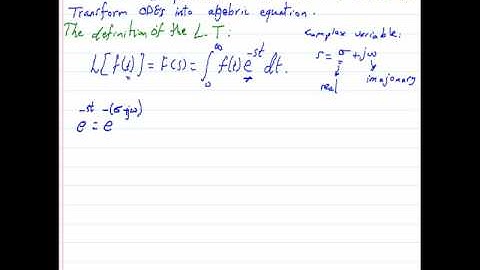 Transform ODEs into algebric equation.
The definition of the L.T:
L[f(t)] = F(s) = ∫₀^∞ f(t) e^-st dt.
complex variable:
s = σ + jω
real
imajonary
e^-st = e^-(σ+jω)